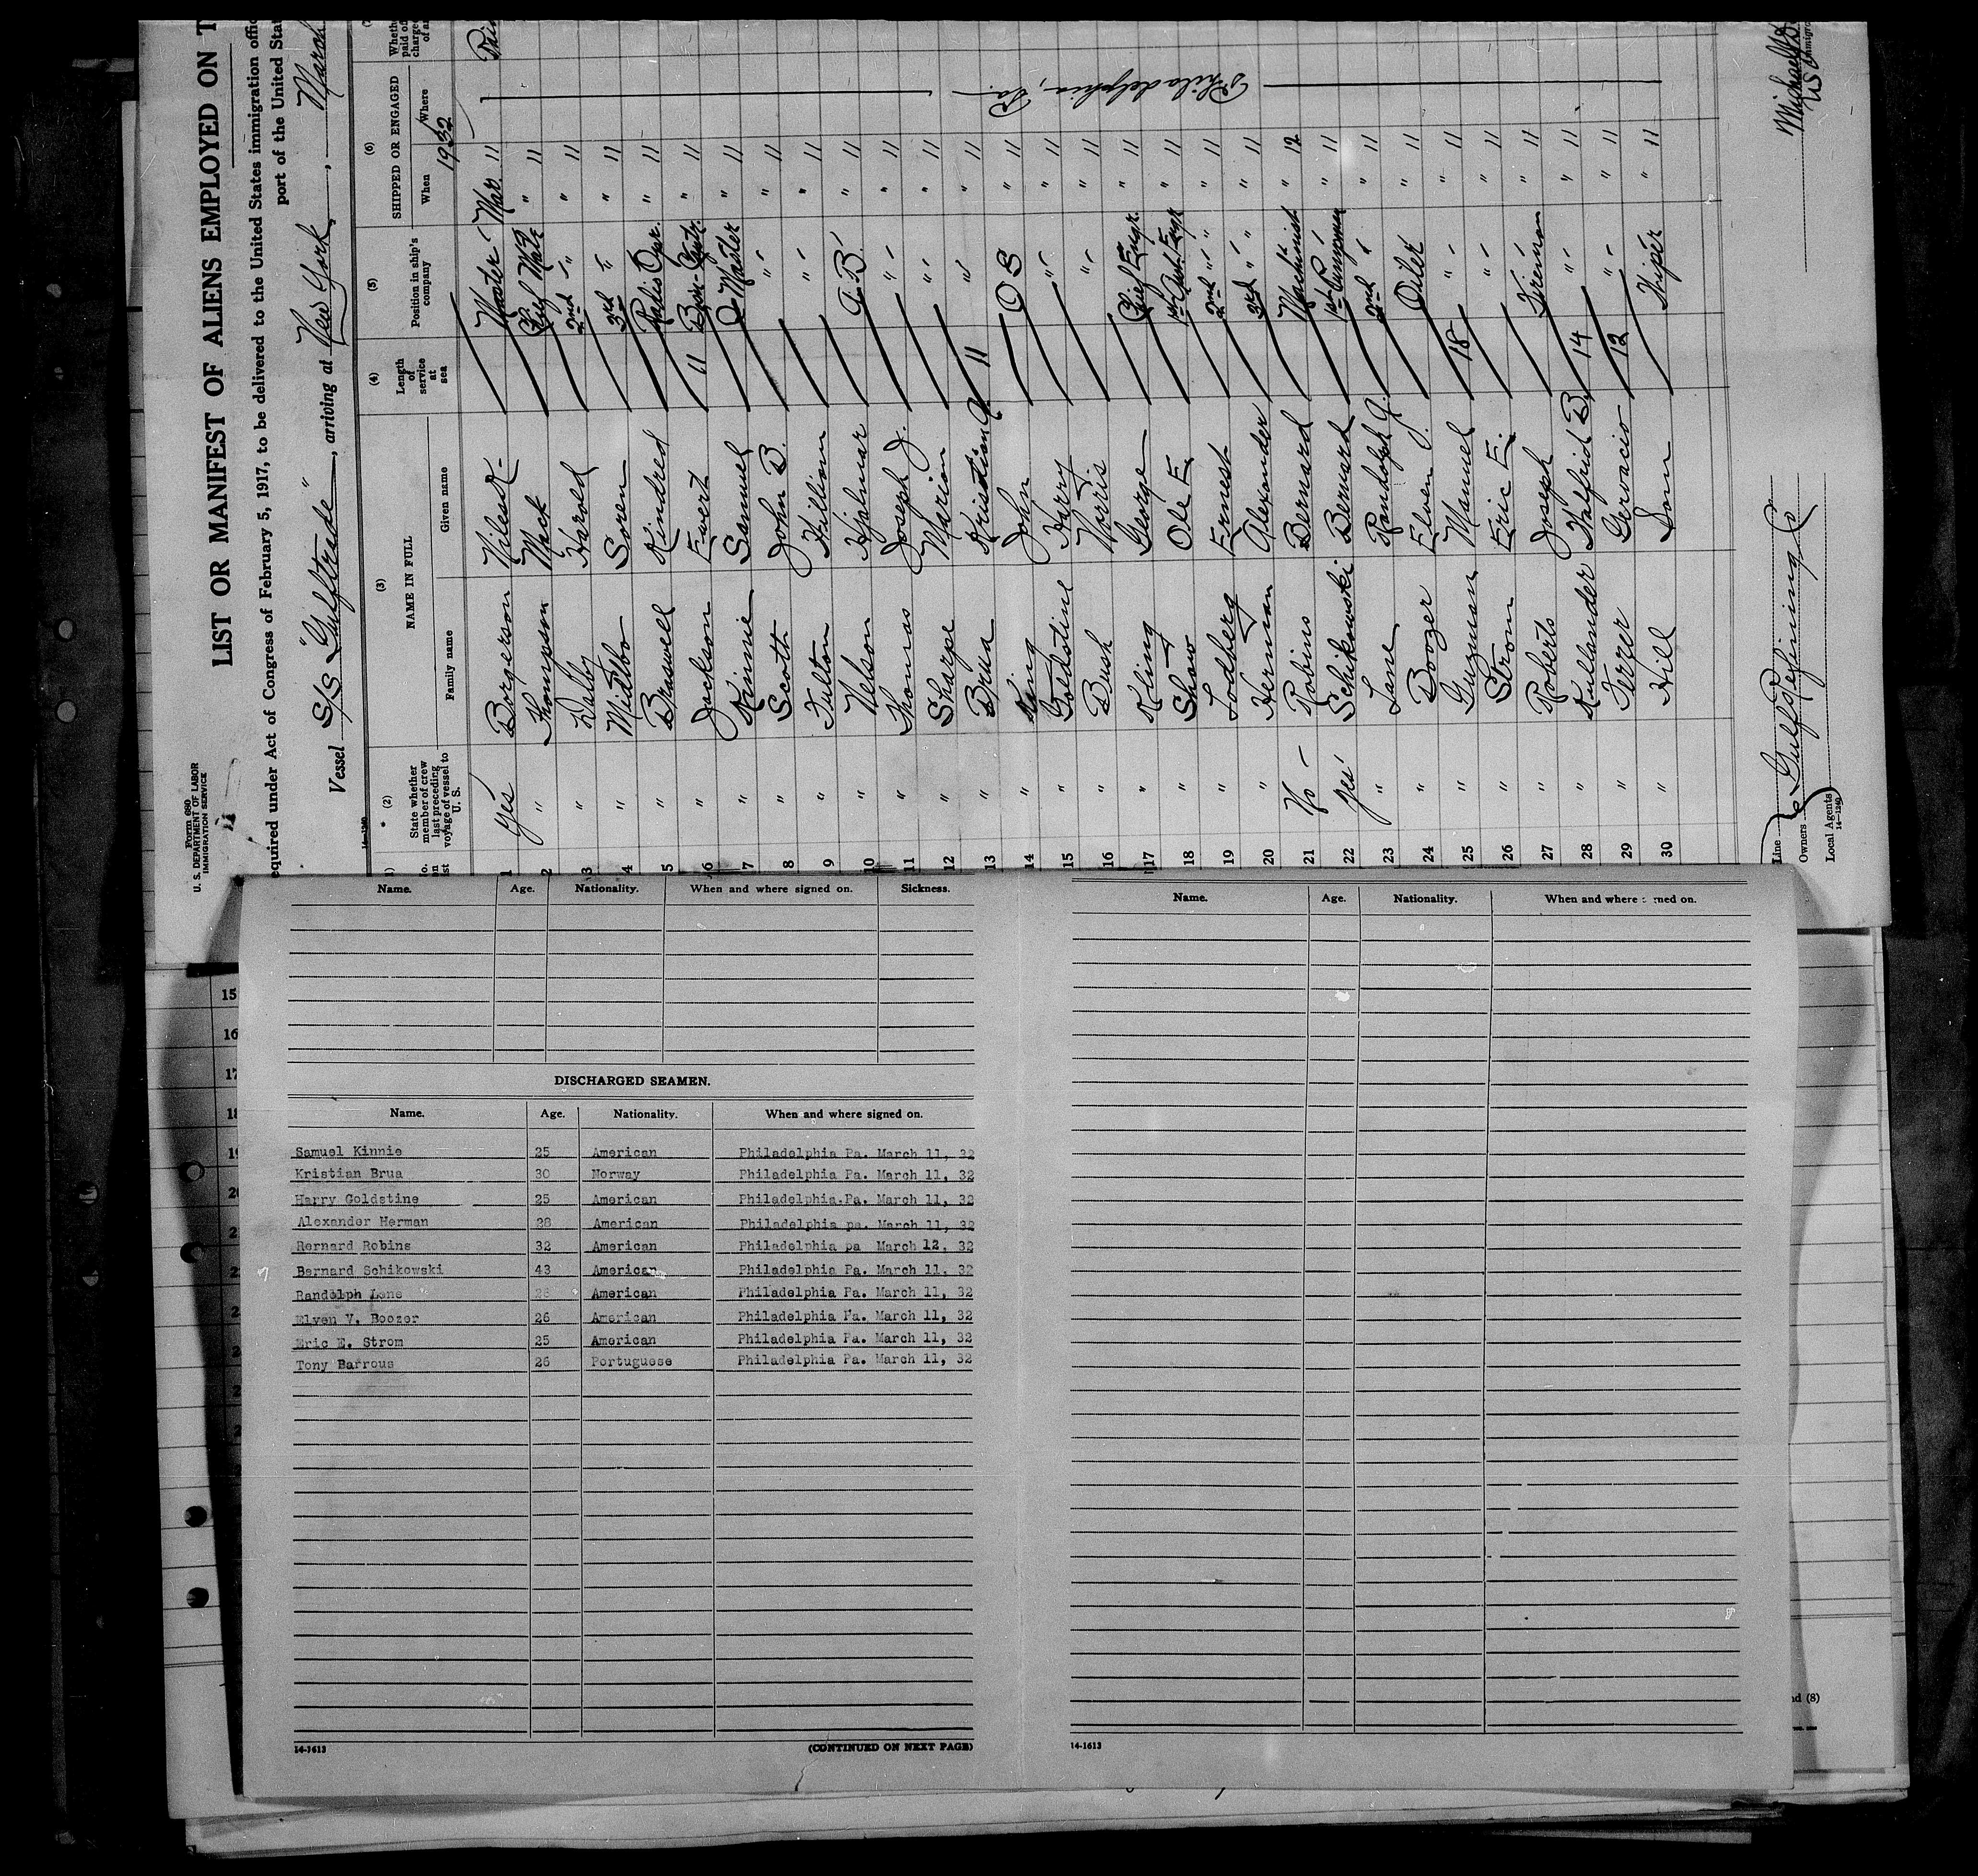 Form 680
U. S. DEPARTMENT OF LABOR
IMMIGRATION SERVICE
LIST OR MANIFEST OF ALIENS EMPLOYED ON T
equired under Act of Congress of February 5, 1917, to be delivered to the United States immigration offic
port of the United Stat
Vessel S/S "Gulftrade", arriving at New York, March
14-1240
(2) (3) (4) (5) (6)
State whether member of crew last preceding voyage of vessel to U. S.
NAME IN FULL
Family name Given name
Length of service at sea
Position in ship's company
SHIPPED OR ENGAGED
When Where
1932
1 Yes Borgerson Niles R- Master Mar. 11
2 " Thompson Mack Chief Mate " 11
3 " Dalby Harold 2nd " " 11
4 " Midtbo Soren 3rd " " 11
5 " Braswell Kindred Radio Opr. " 11
6 " Jackson Evert 11 " 11
7 " Kinnie Samuel Q Master " 11
8 " Scott John B. " " 11
9 " Fulton Hilliom " " 11
10 " Nelson Hjalmar A. B. " 11
11 " Thomas Joseph J. " " 11
12 " Sharpe Marion " " 11
13 " Brua Kristian 11 " " 11
14 " King John O S " 11
15 " Goldstine Harry " " 11
16 " Bush Norris " " 11
17 " Kling George Chief Engr. " 11
18 " Show Ole E. 1st Asst. Engr " 11
19 " Lodberg Ernest 2nd " " " 11
20 " Herman Alexander 3rd " " " 11
21 No - Robins Bernard Machinist " 12
22 Yes Schikowski Bernard 1st Pumpman " 11
23 " Lane Randolph J. 2nd " " 11
24 " Boozer Elven J. Oiler " 11
25 " Guzman Manuel 18 " " 11
26 " Strom Eric E. " " 11
27 " Roberts Joseph Fireman " 11
28 " Kullander Halfrid B. 14 " " 11
29 " Ferrer Gervacio 12 " " 11
30 " Hill Son Wiper " 11
Philadelphia, Pa.
Line
Owners Gulf Refining Co
Local Agents
14-1240
Name. Age. Nationality. When and where signed on. Sickness.
DISCHARGED SEAMEN.
Name. Age. Nationality. When and where signed on.
Samuel Kinnie 25 American Philadelphia Pa. March 11, 32
Kristian Brua 30 Norway Philadelphia Pa. March 11, 32
Harry Goldstine 25 American Philadelphia.Pa. March 11, 32
Alexander Herman 28 American Philadelphia pa. March 11, 32
Bernard Robins 32 American Philadelphia pa March 12, 32
Bernard Schikowski 43 American Philadelphia Pa. March 11, 32
Randolph Lane 28 American Philadelphia Pa. March 11, 32
Elven V. Boozer 26 American Philadelphia Pa. March 11, 32
Eric E. Strom 25 American Philadelphia Pa. March 11, 32
Tony Barrous 26 Portuguese Philadelphia Pa. March 11, 32
14-1613 (CONTINUED ON NEXT PAGE)
Name. Age. Nationality. When and where ned on.
14-1613
nd (8)
15
16
17
18
19